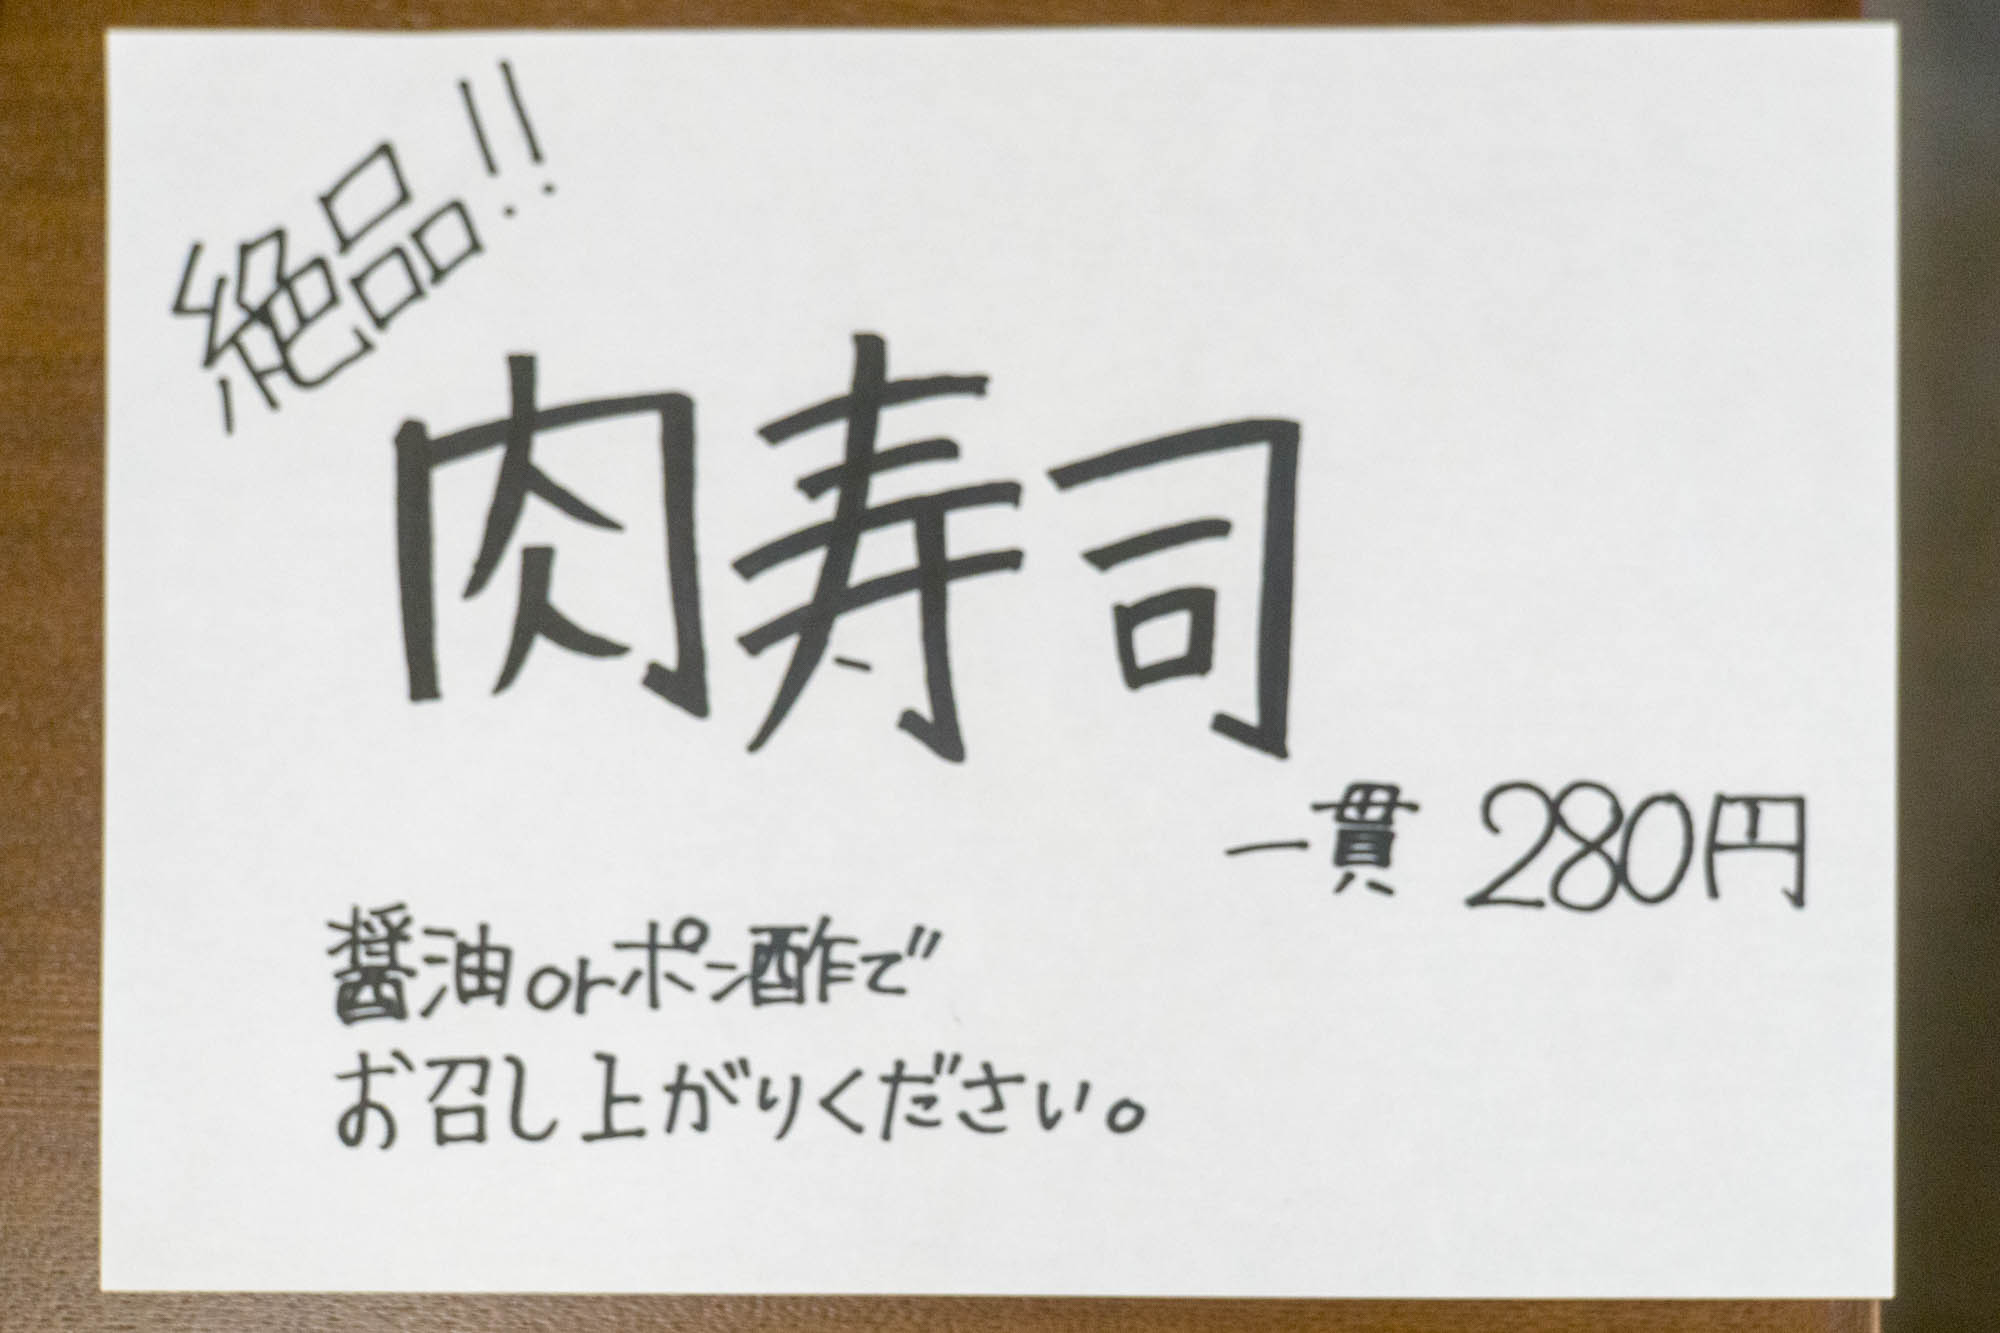 絶品!!
肉寿司
一貫 280円
醤油orポン酢で
お召し上がりください。